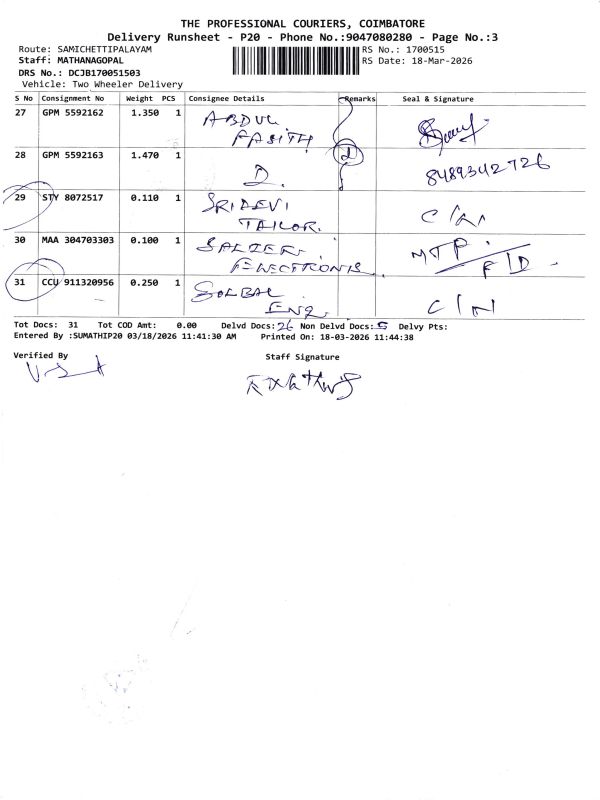 THE PROFESSIONAL COURIERS, COIMBATORE
Delivery Runsheet - P20 - Phone No.:9047080280 - Page No.:3
Route: SAMICHETTIPALAYAM
RS No.: 1700515
Staff: MATHANAGOPAL
RS Date: 18-Mar-2026
DRS No.: DCJB170051503
Vehicle: Two Wheeler Delivery
S No Consignment No Weight PCS Consignee Details Remarks Seal & Signature
27 GPM 5592162 1.350 1 ABDUL
FASITH
28 GPM 5592163 1.470 1 D. 2 8489342726
29 STY 8072517 0.110 1 SRIDEVI
TAILOR.
30 MAA 304703303 0.100 1 SALZER MTP.
ELECTRONIS F/D
31 CCU 911320956 0.250 1 GOLBAL
ENQ. C/N
Tot Docs: 31 Tot COD Amt: 0.00 Delvd Docs: 26 Non Delvd Docs: 5 Delvy Pts:
Entered By :SUMATHIP20 03/18/2026 11:41:30 AM Printed On: 18-03-2026 11:44:38
Verified By Staff Signature